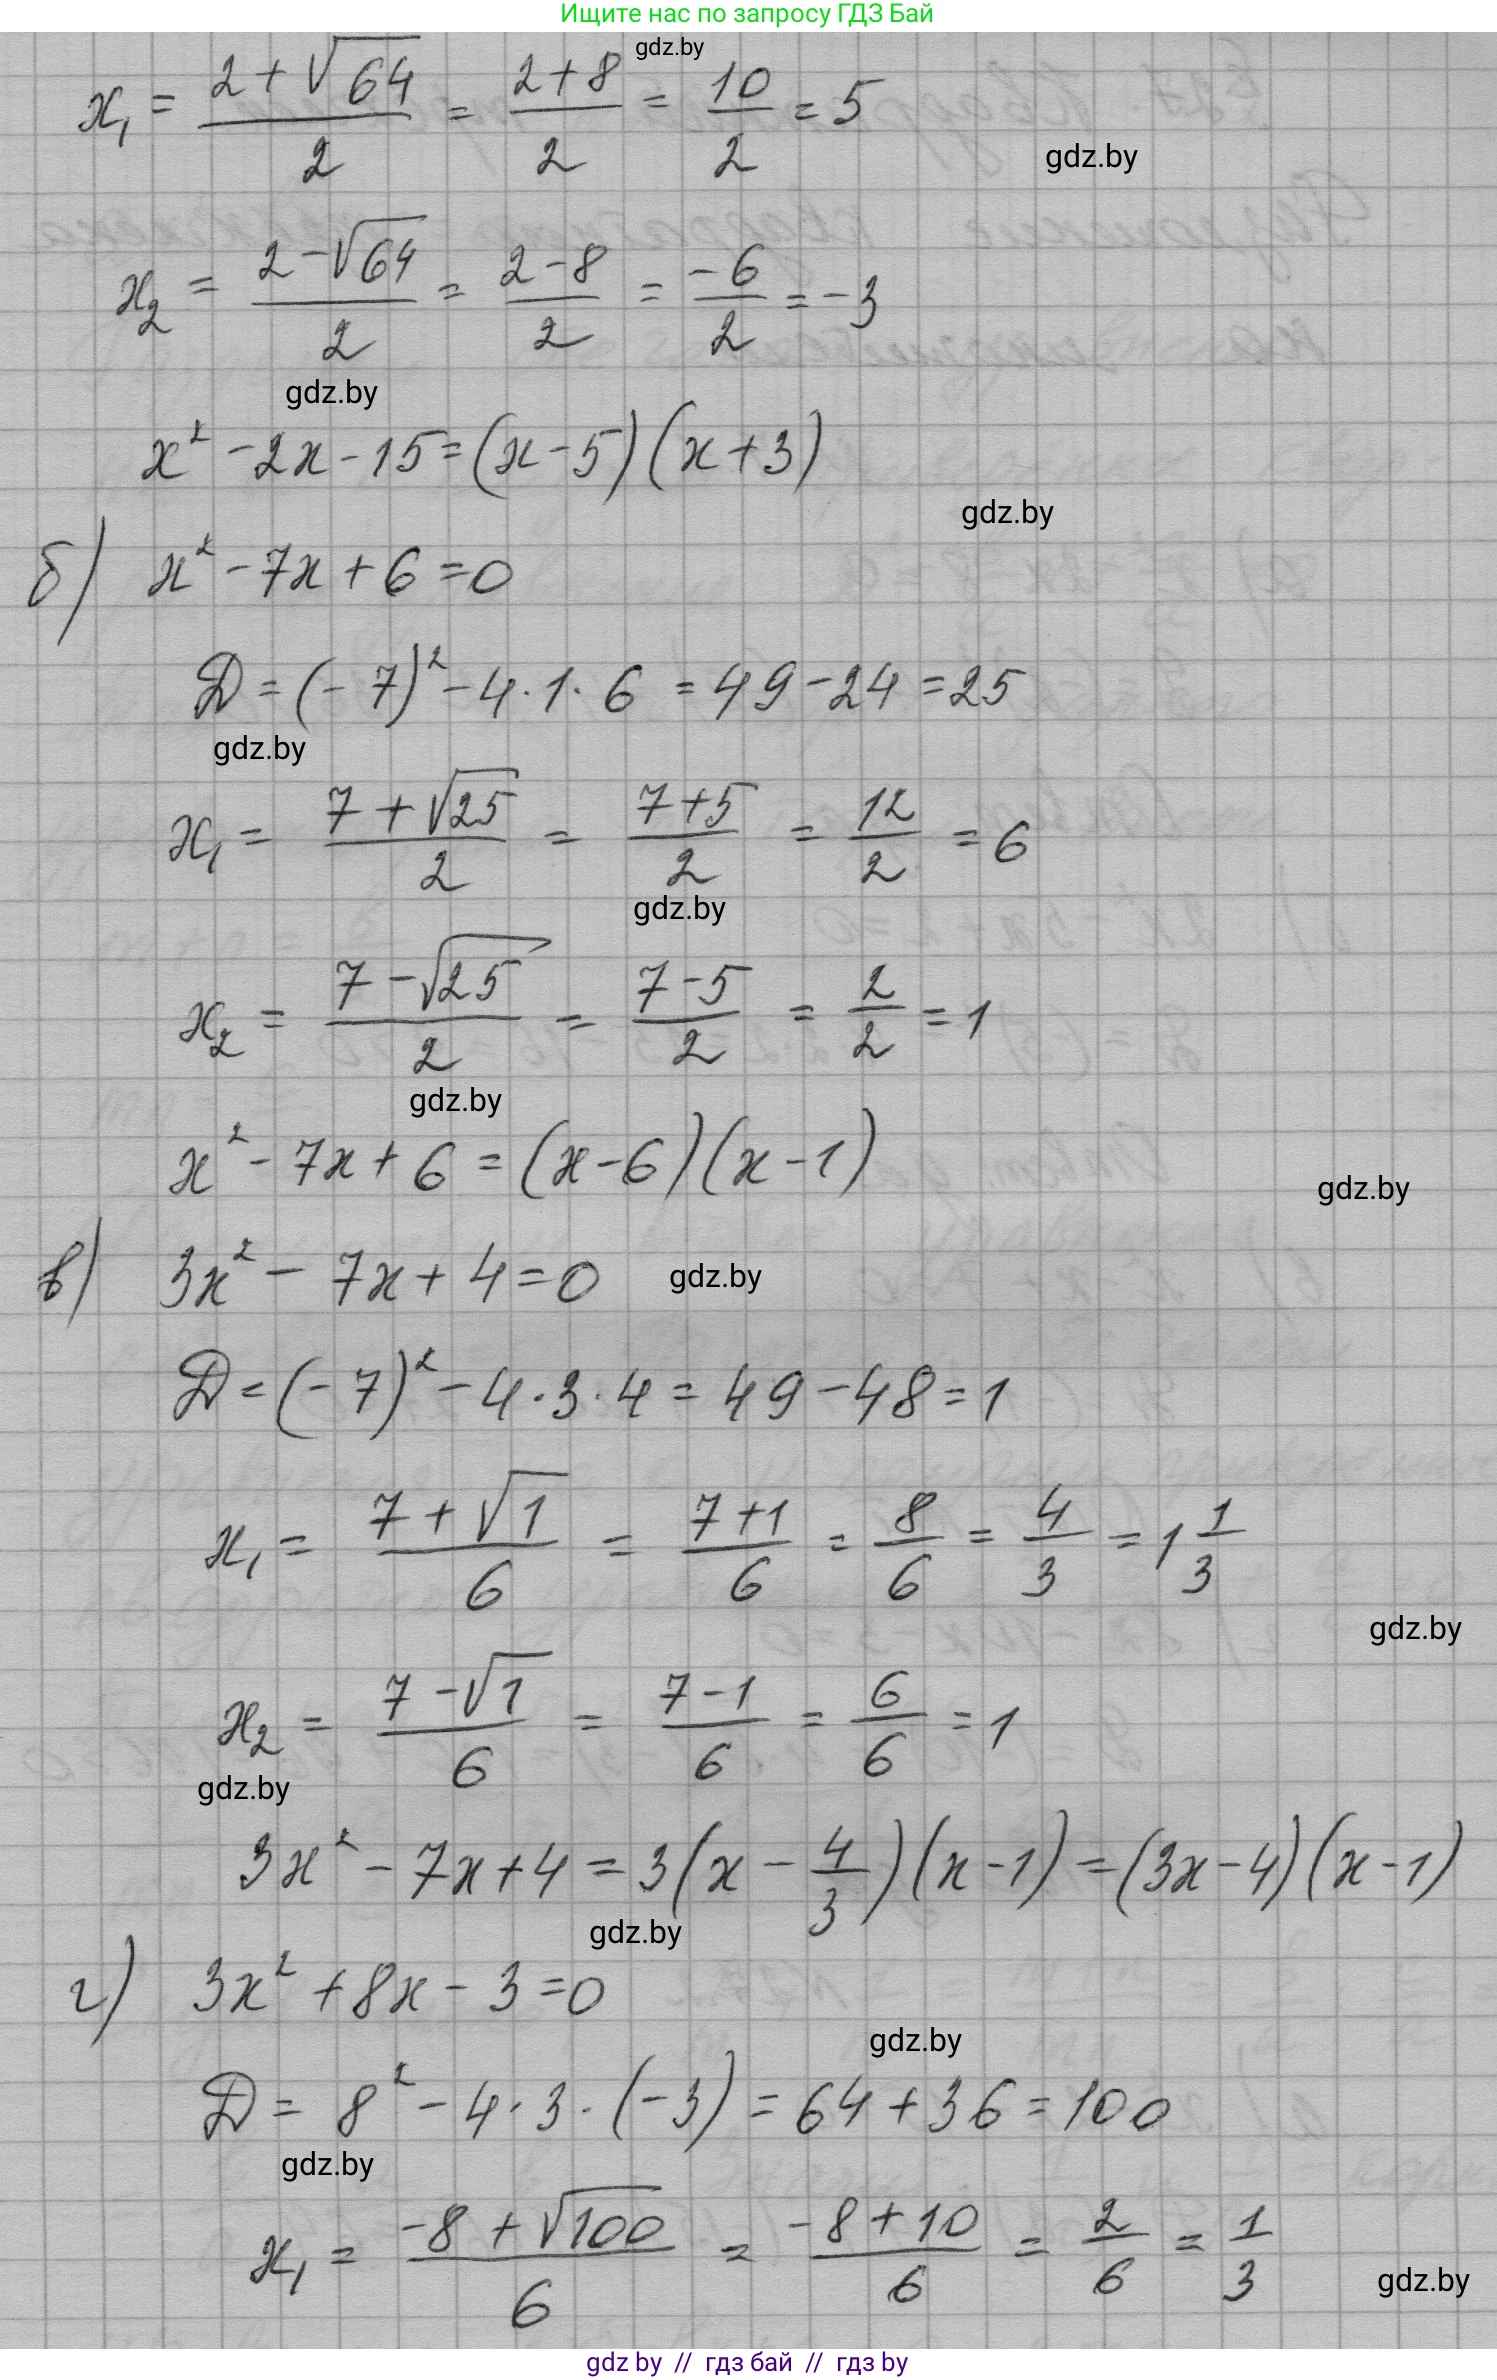 Ищите нас по запросу ГДЗ Бай
gdz.by
x₁ = (2+√64)/2 = (2+8)/2 = 10/2 = 5
gdz.by
x₂ = (2-√64)/2 = (2-8)/2 = -6/2 = -3
gdz.by
x² - 2x - 15 = (x-5)(x+3)
gdz.by
б) x² - 7x + 6 = 0
D = (-7)² - 4·1·6 = 49 - 24 = 25
gdz.by
x₁ = (7+√25)/2 = (7+5)/2 = 12/2 = 6
gdz.by
x₂ = (7-√25)/2 = (7-5)/2 = 2/2 = 1
gdz.by
x² - 7x + 6 = (x-6)(x-1)
gdz.by
в) 3x² - 7x + 4 = 0
gdz.by
D = (-7)² - 4·3·4 = 49 - 48 = 1
x₁ = (7+√1)/6 = (7+1)/6 = 8/6 = 4/3 = 1 1/3
gdz.by
x₂ = (7-√1)/6 = (7-1)/6 = 6/6 = 1
gdz.by
3x² - 7x + 4 = 3(x - 4/3)(x-1) = (3x-4)(x-1)
gdz.by
г) 3x² + 8x - 3 = 0
gdz.by
D = 8² - 4·3·(-3) = 64 + 36 = 100
gdz.by
x₁ = (-8+√100)/6 = (-8+10)/6 = 2/6 = 1/3
gdz.by
gdz by // гдз бай // гдз by